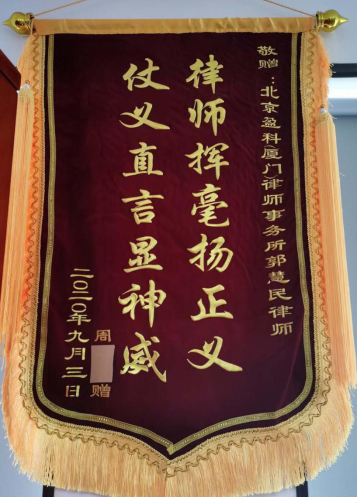 敬赠：北京盈科(厦门)律师事务所郭慧民律师
律师挥毫扬正义
仗义直言显神威
周 赠
二〇二〇年九月三日